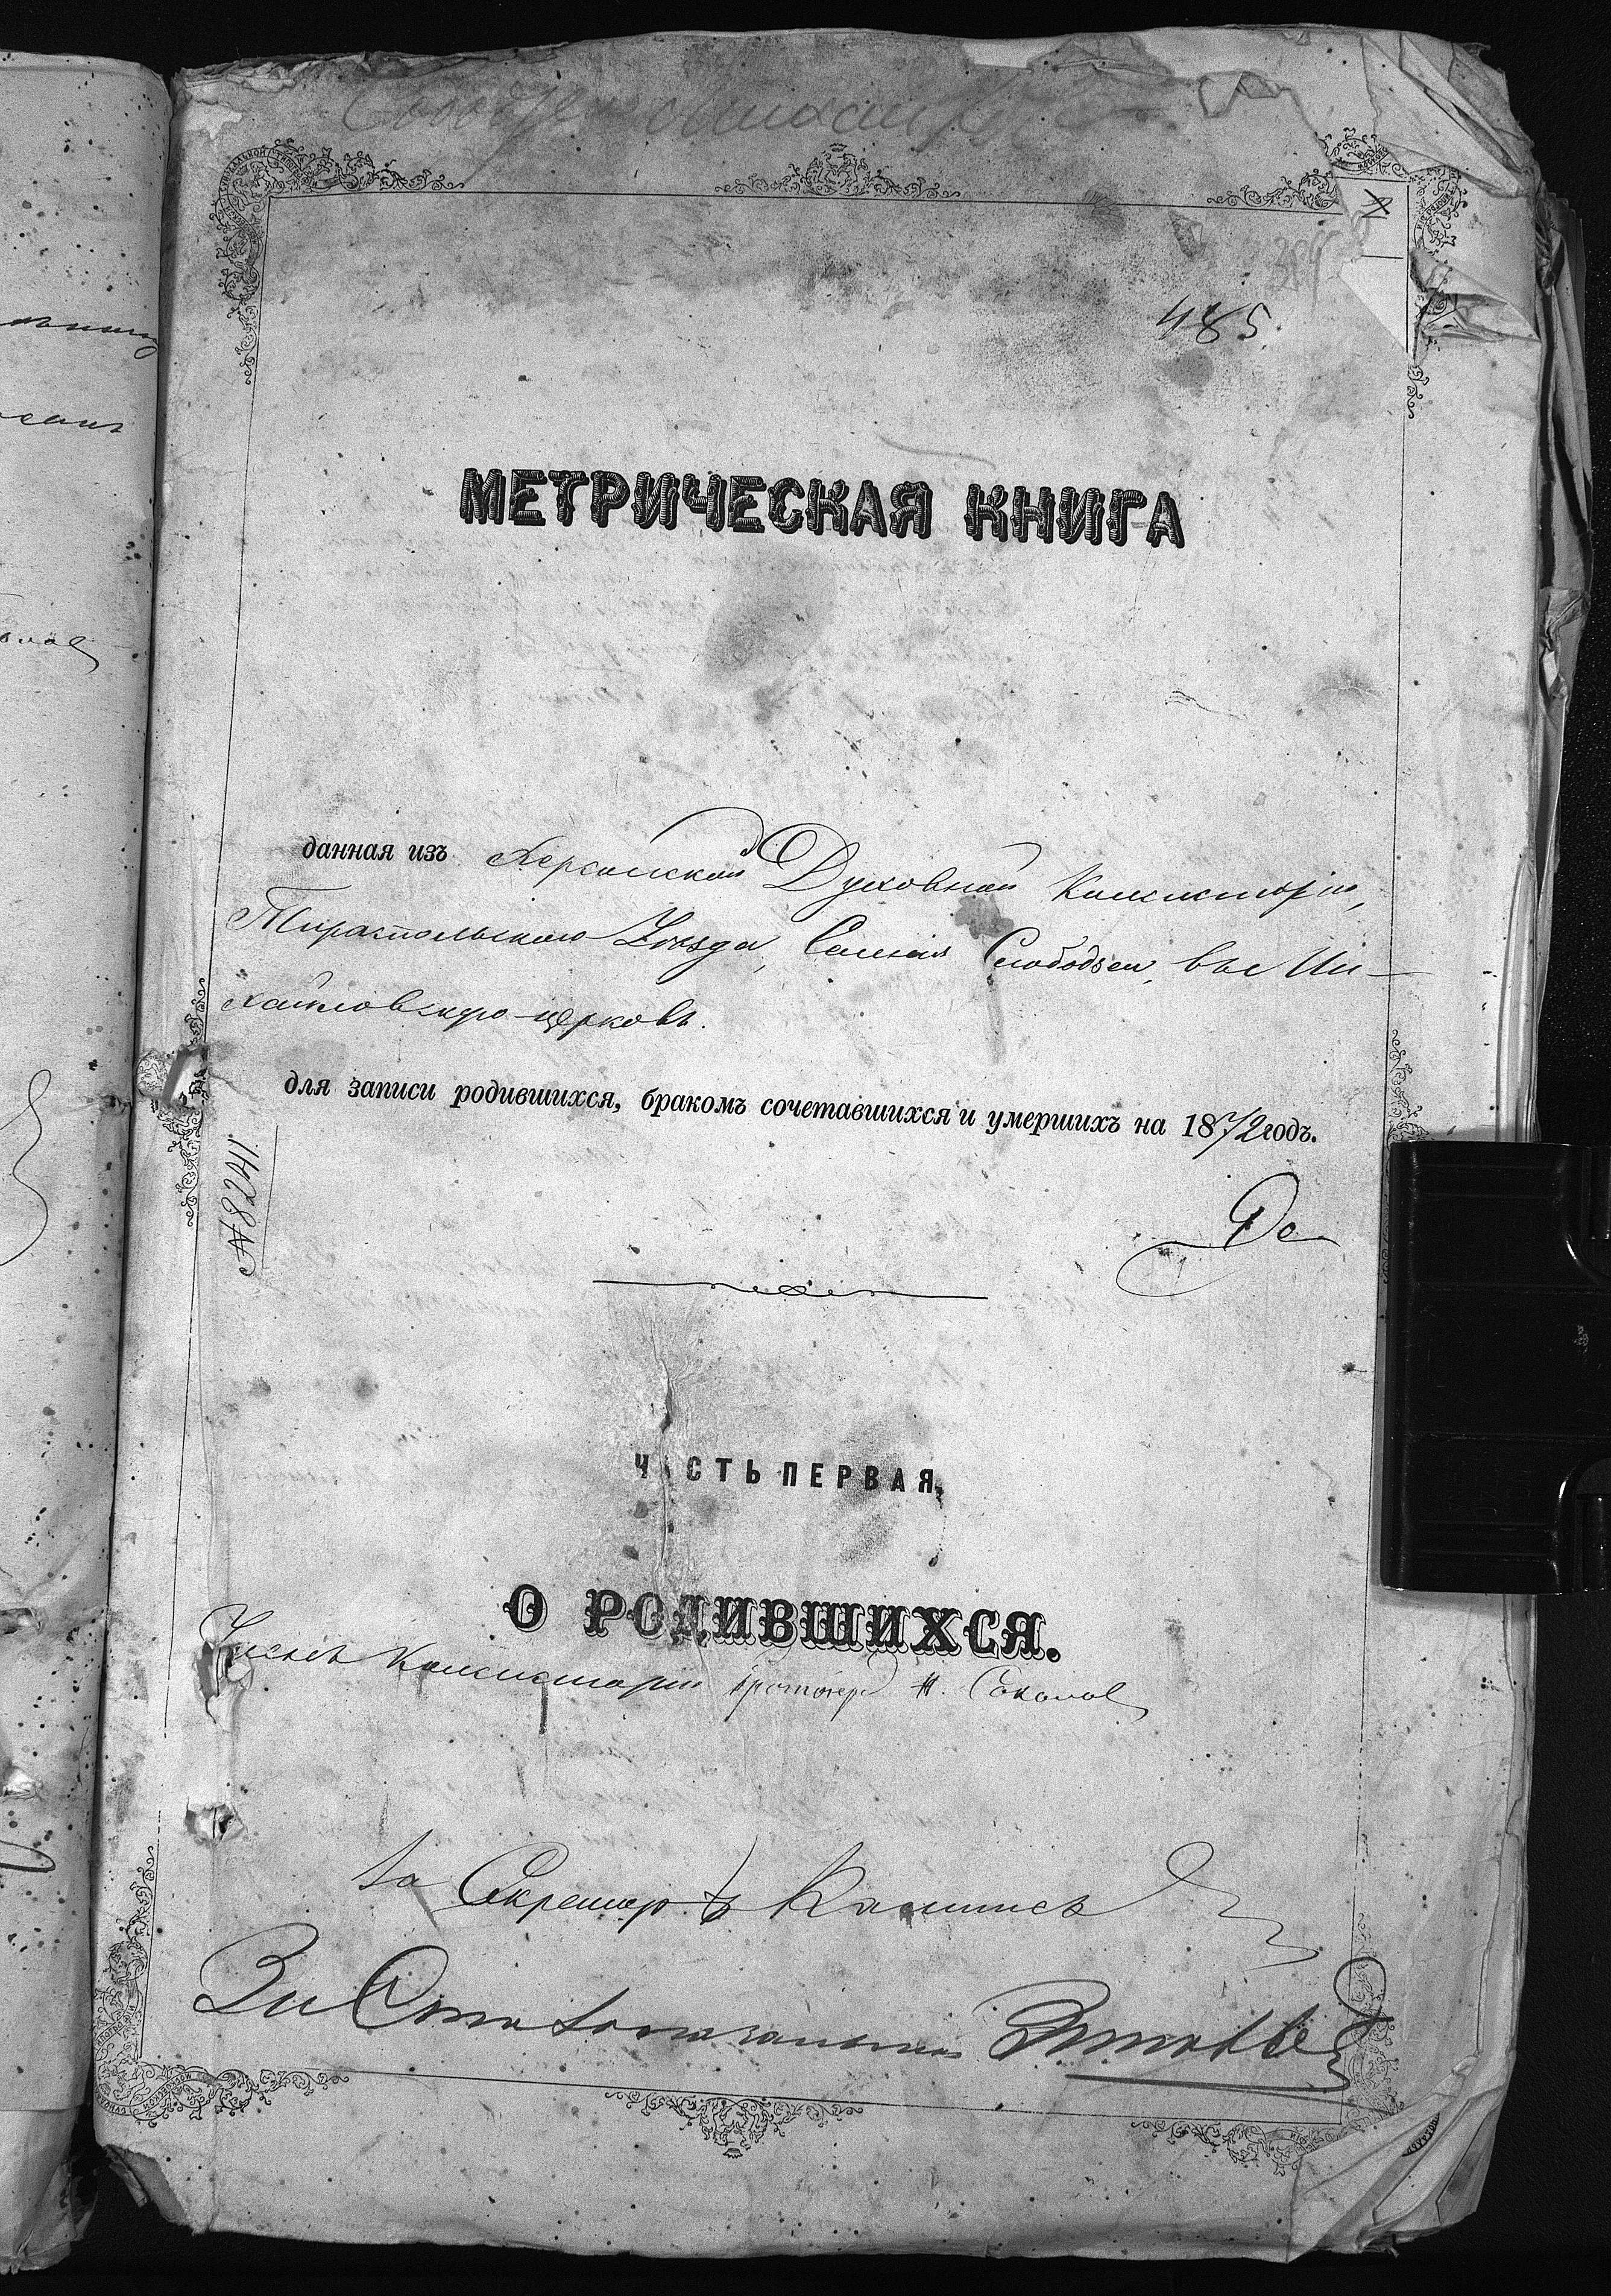 485.
МЕТРИЧЕСКАЯ КНИГА
данная изъ Херсонской Духовной Консисторіи,
Тираспольскаго Уѣзда, Селенія Слободзеи, въ Ми-
хайловскую церковь.
для записи родившихся, бракомъ сочетавшихся и умершихъ на 1872 годъ.
№ 8241.
ЧАСТЬ ПЕРВАЯ,
О РОДИВШИХСЯ.
Членъ Консисторіи Протоіерей Н. Соколов
За Секретаря
За Столоначальника